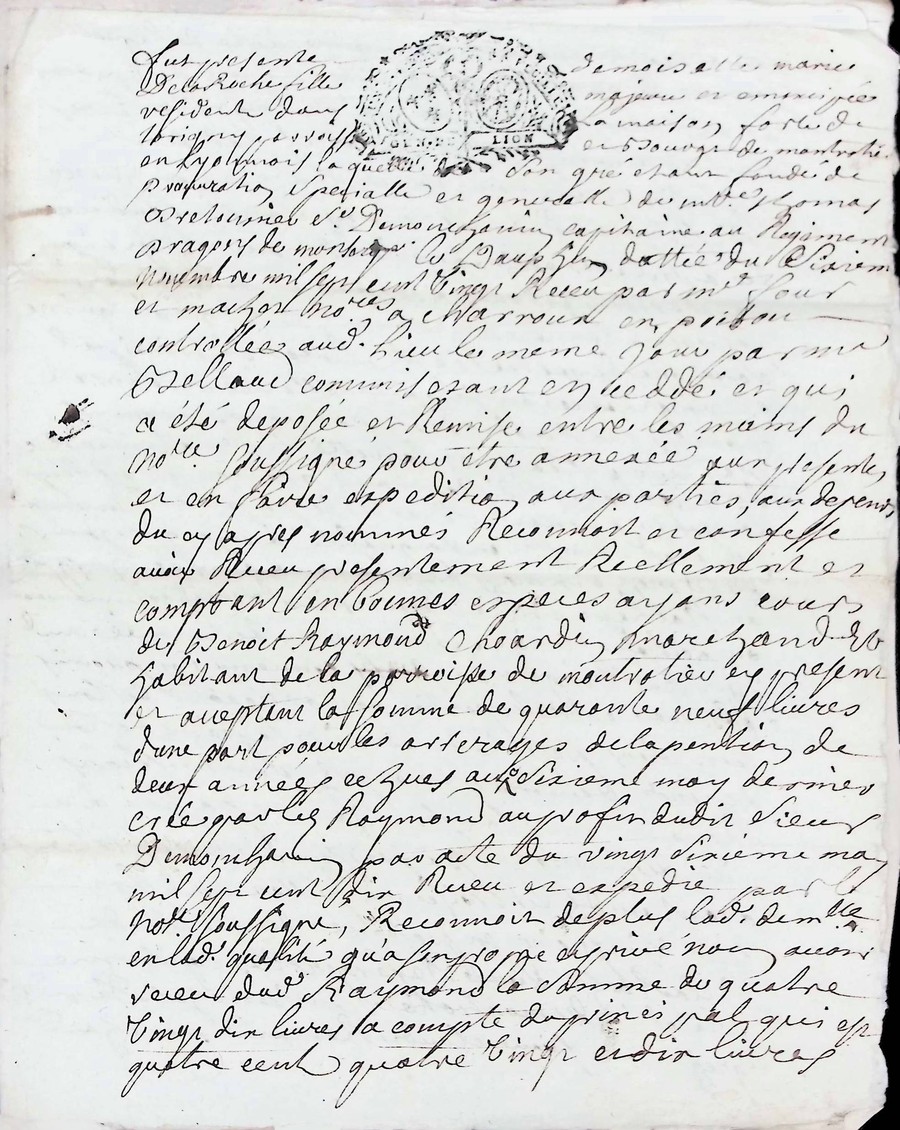 fut presente demoiselle marie
Dela Roche fille majeure et emancipée
residente dans la maison forte de
torigny parroisse et de montrotier
GEN. DE LION
en Lyonnois laquelle de son gré etant fondé de
procuration specialle et generalle de Thomas
Bretonnier Sr. Demonchanin capitaine au Regiment
Dragons de le Dauphin dattée du Sixiem
Novembre mil sept cent Vingt Receu par mr. Jour
et machet No.res a charroux en poitou
controllée aud. Lieu le meme Jour par mr
Bellaud commis exant en ceddé et qui
a été deposée et Remise entre les mains du
No.re soussigné pour être annexée aux presentes
et en faire expedition aux parties, aux depens
du cy apres nommés Reconnoit et confesse
avoir Receu presentement Reellement et
comptant en bonnes especes ayans cours
de Benoit Raymond Choardin marchand et
habitant de la parroisse de montrotier cy present
et aceptant la somme de quarante neuf livres
d'une part pour les arrerages de la pention de
deux années echues au Sixieme may dernier
crée par led. Raymond au profit dudit Sieur
Demonchanin par acte du vingt Sixieme may
mil sept cent dix Receu et expedié par le
No.re soussigné, Reconnoit de plus lad. dem.lle
en lad. qualité qu'a son propre et privé nom avoir
receu dud. Raymond la Somme de quatre
Vingt dix livres a compte du principal qui est
quatre cent quatre Vingt et dix livres